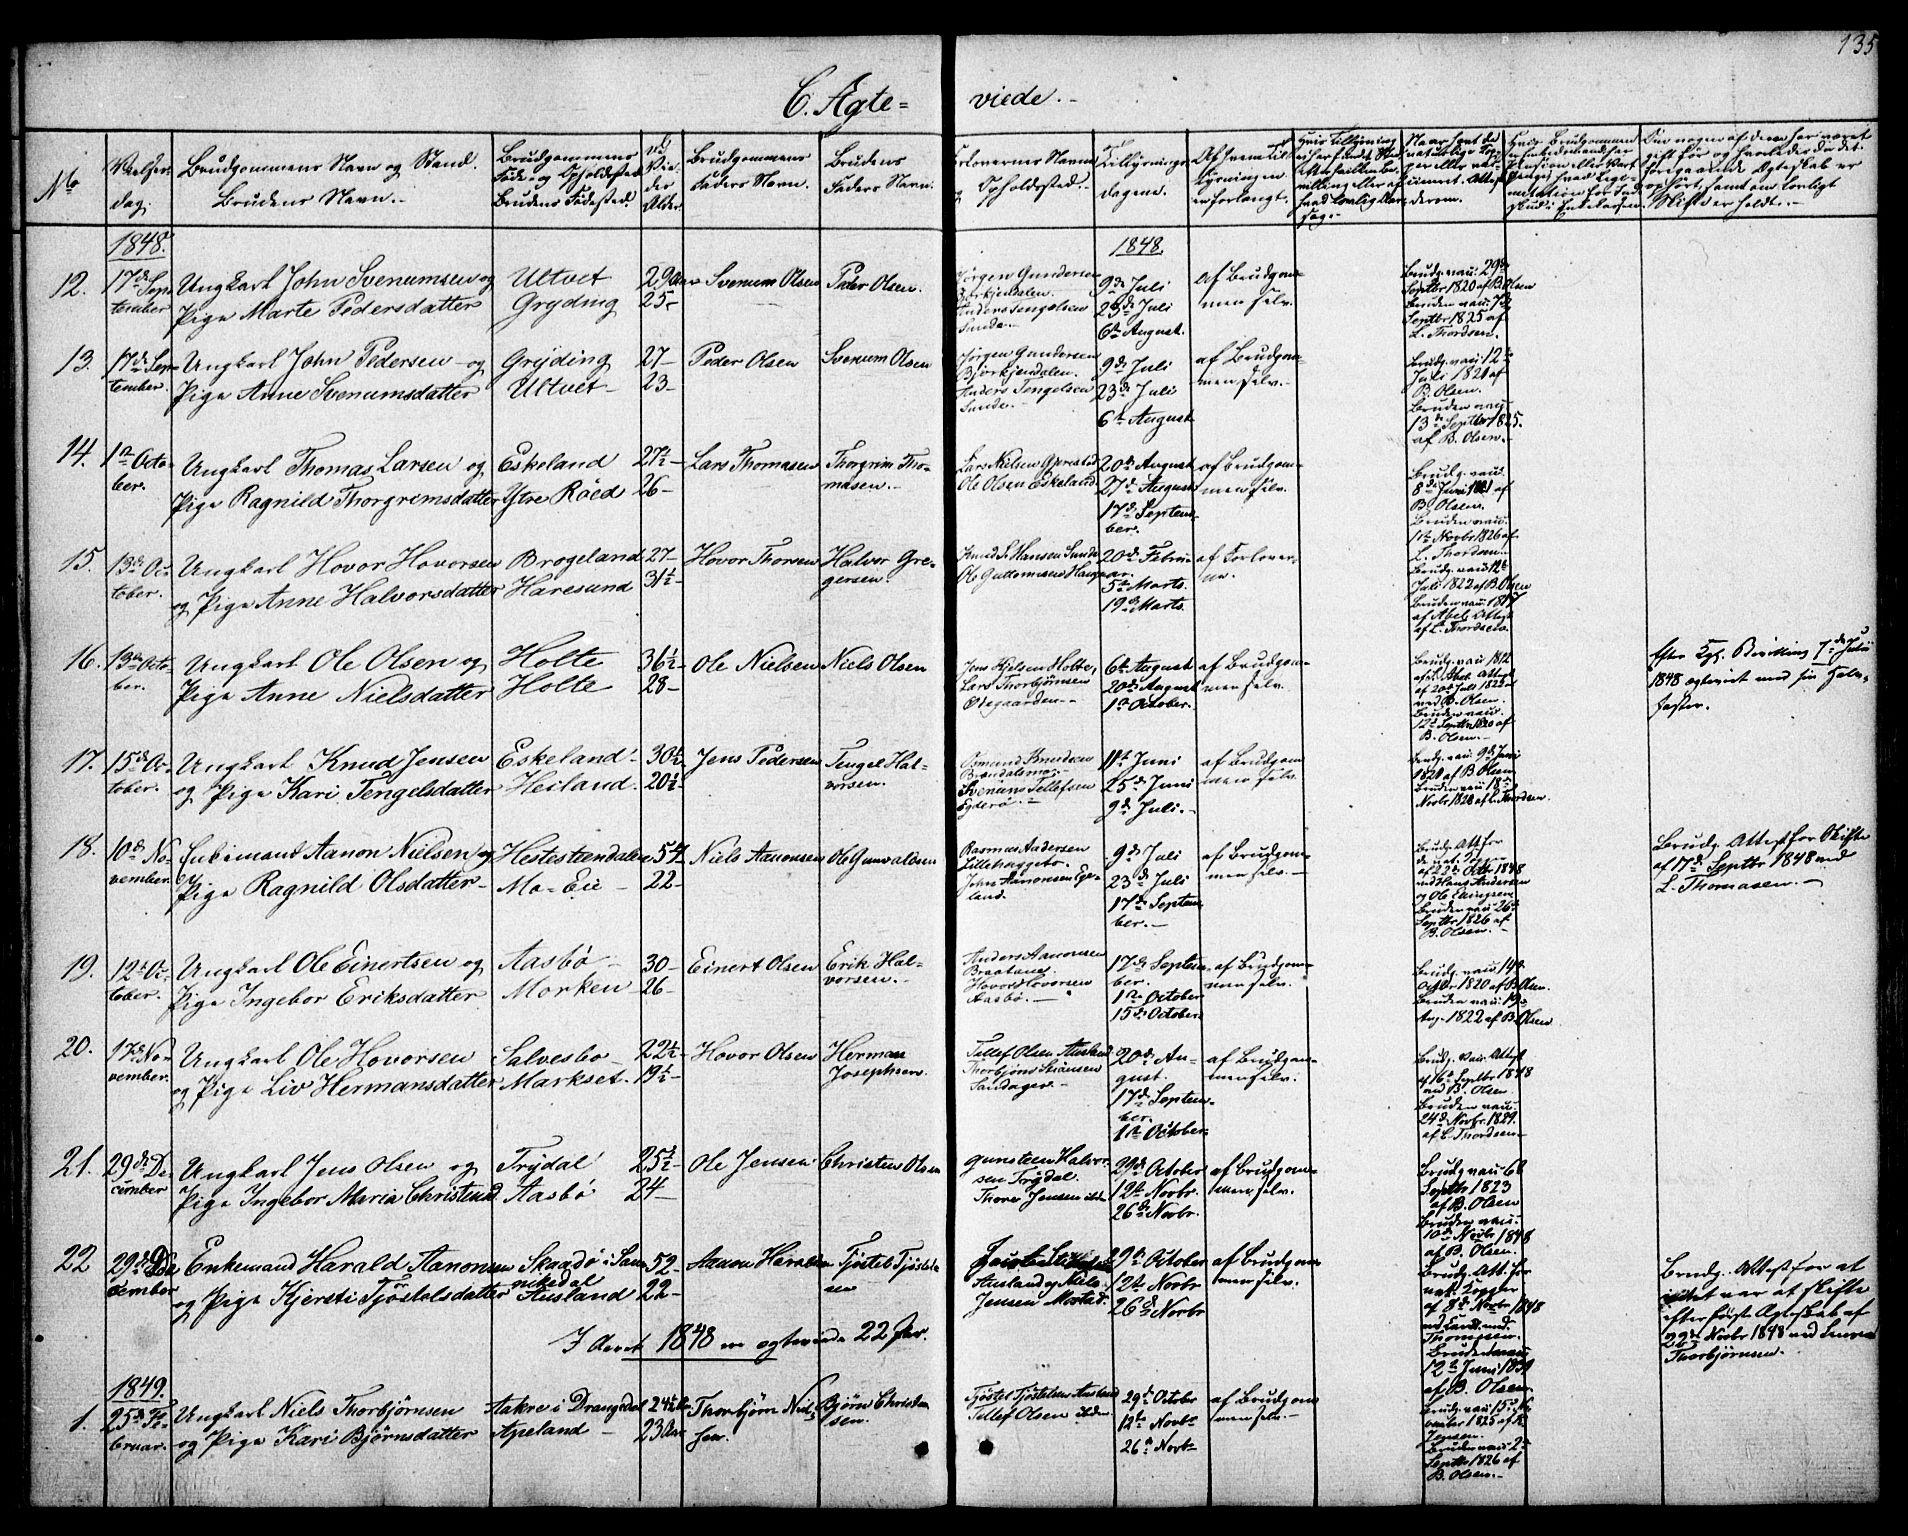 135
C. Ægte= viede.-
No
Vielses-
dag.
Brudgommens Navn og Stand.
Brudens Navn.-
Brudgommens
Føde og Opholdssted
Brudens Fødested.
Brudgommens
Faders Navn.
Brudens
Faders Navn.
Forlovernes Navne
Opholdssted.
Tillysnings-
dagene.
Af hvem Til-
lysningen
er forlangt.
1848.
1848.
12. 17de Sep-
tember
Ungkarl John Svenumsen og
Pige Marte Pedersdatter
Ultvet
Gryding
29 Aar
25-
Svenum Olsen
Peder Olsen.
Jørgen Gundersen
Bjørkjendalen.
Anders Tengelsen
Sunde.-
9de Juli
23de Juli
6te August.
af Brudgom-
men selv.
Brudg. vac. 29de
Septbr 1820 af B. Olsen
Bruden vac. 7de
Septbr 1825 af
L. Thordsen.
13. 17de Sep-
tember.
Ungkarl John Pedersen - og
Pige Anne Svenumsdatter
Gryding
Ultvet-
27-
23-
Peder Olsen
Svenum Olsen
Jørgen Gundersen
Bjørkjendalen.
Anders Tengelsen
Sunde.-
9de Juli
23de Juli
6te August
af Brudgom-
men selv.-
Brudg. vac. 12te
Juli 1821 af
B. Olsen.
Bruden vac.
13de Septbr 1825.
af B. Olsen.-
14. 1ste Octo-
ber.
Ungkarl Thomas Larsen og
Pige Ragnild Thorgrimsdatter
Eskeland
Ytre Röed
27½-
26-
Lars Thomasen
Thorgrim Tho-
masen.-
Lars Nielsen Gjerestad
Ole Olsen Eskeland.
20de August
27de August
17de Septem-
ber.
af Brudgom-
men selv.
Brudg. vac.
8de Juni 1821 af
B. Olsen.
Bruden vac.
11te Novbr 1826 af
L. Thordsen.
15. 13de Oc-
tober.
Ungkarl Hovor Hovorsen
og Pige Anne Halvorsdatter
Brogeland
Haresund
27-
31½-
Hovor Thorsen
Halvor Gre-
gersen.
Knud S. Hansen Sunde
Ole Guttormsen Hauge
20de Febru-
ar.
5te Marts.
19de Marts.
af Forlover-
ne.
Brudg. vac. 12te
Juli 1822 af B. Olsen
Bruden vac. 1817
af Abel. Attest
af L. Thordsen.
16. 13de Octo-
ber.
Ungkarl Ole Olsen og
Pige Anne Nielsdatter
Holte
Holte
36½-
28-
Ole Nielsen
Niels Olsen
Jens Kjelsen Holte,
Lars Thorbjørnsen
Ødegaarden.-
6te August
20de August
1ste October.
af Brudgom-
men selv.
Brudg. vac. 1812
af Abel. Attest
af 20de Juli 1822
ved B. Olsen.
Bruden vac.
12te Septbr 1820 af
B. Olsen.-
Efter Kgl. Bevilling 7de Juli
1848 ægteviet med sin Halv-
faster.
17. 15de Oc-
tober.
Ungkarl Knud Jensen
og Pige Kari Tengelsdatter
Eskeland
Heiland.
30½-
20½-
Jens Pedersen
Tengel Hal-
vorsen.
Osmund Knudsen
Brændalsmo.-
Svenum Tellefsen
Egderö.-
11te Juni
25de Juni
9de Juli.-
af Brudgom-
men selv.
Brudg. vac. 9de Juni
1821 af B. Olsen
Bruden vac. 18de
Novbr 1828 af L. Thordsen.
18. 10de No-
vember.
Enkemand Aanon Nielsen og
Pige Ragnild Olsdatter-
Hestestrandalen
Mo-Eie-
54-
22-
Niels Aanonsen
Ole Gunvaldsen
Rasmus Andersen
Lillehaggebo.
John Aanonsen Ege-
land.
9de Juli
23de Juli
17de Septem-
ber.-
af Brudgom-
men selv.-
Brudg. Att for
nat. Kopper
af 22de Octbr 1848
ved Hans Andersen
og Ole Ellingsen.
Bruden vac. 26de
Septbr 1826 af
B. Olsen.-
Brudg. Attest for Skifte
af 17de Septbr 1848 ved
L. Thomasen.-
19. 12te Oc-
tober.
Ungkarl Ole Einertsen og
Pige Ingebor Eriksdatter
Aasbø-
Morken-
30-
26-
Einert Olsen
Erik Hal-
vorsen.-
Anders Aanonsen
Braaland
Hovor Hovorsen
Aasbø.-
17de Septem-
ber.
1ste October
15de October.
af Brudgom-
men selv.
Brudg. vac. 14de
Octbr 1820 af B. Olsen.
Bruden vac. 19de
Aug. 1822 af B. Olsen
20. 17de No-
vember.
Ungkarl Ole Hovorsen
og Pige Liv Hermansdatter
Salvesbo-
Markset.-
22½-
19½-
Hovor Olsen
Herman
Josephsen.
Tellef Olsen Ausland
Thorbjørn Steansen
Sandager.-
20de Au-
gust.
17de Septem-
ber.
1ste October.
af Brudgom-
men selv.
Brudg. Vac. Attest
af 16de Septbr 1848
ved B. Olsen
Bruden vac.
24de Novbr. 1829.
af L. Thordsen-
21. 29de De-
cember
Ungkarl Jens Olsen og
Pige Ingebor Maria Christensd.
Trydal
Aasbö
25½-
24-
Ole Jensen
Christen Olsen
Gunsteen Halvor-
sen Trydal.
Thorer Jensen ibdm.
29de October
12te Novbr.
26de Novbr.
af Brudgom-
men selv.
Brudg. vac. 6te
Septbr 1823
af B. Olsen
Bruden vac.
10de Novbr 1848
af B. Olsen.
22 29de De-
cember
Enkemand Harald Aanonsen
og Pige Kjersti Tjöstolsdatter
Skaadö i San-
nikedal
Ausland
52-
22-
Aanon Haraldsen
Tjöstel Tjöstels-
en
Ausland og Niels
Jensen Mostad.
29de October
12te Novbr
26de Novbr
af Brudgom-
men selv.
Brudg. Att. for
nat. Kopper
af 8de Novbr 1848
Thomesen.
Bruden vac.
12te Juni 1830
af B. Olsen.
Brudg. Attest for at
intet var at skifte
efter første Ægteskab af
22de Novbr 1848 ved
Thorbjørnsen.
I Aaret 1848 er ægteviede 22 Par.
1849.
1. 25de Fe-
bruar.
Ungkarl Niels Thorbjørnsen
og Pige Kari Bjørnsdatter
Aakre i Drangedal
Apeland-
24½ Aar
23 Aar
Thorbjørn Niel-
sen.
Bjørn Christen-
sen.
Tjöstel Tjöstelsen Ausland
Tellef Olsen ibdm.
29de October
12te Novbr
26de Novbr
af Brudgom-
men selv.-
Brudg. vac. 15de
1825 af
Jensen.
Bruden vac. 2den
Septbr 1826 af
B. Olsen.-